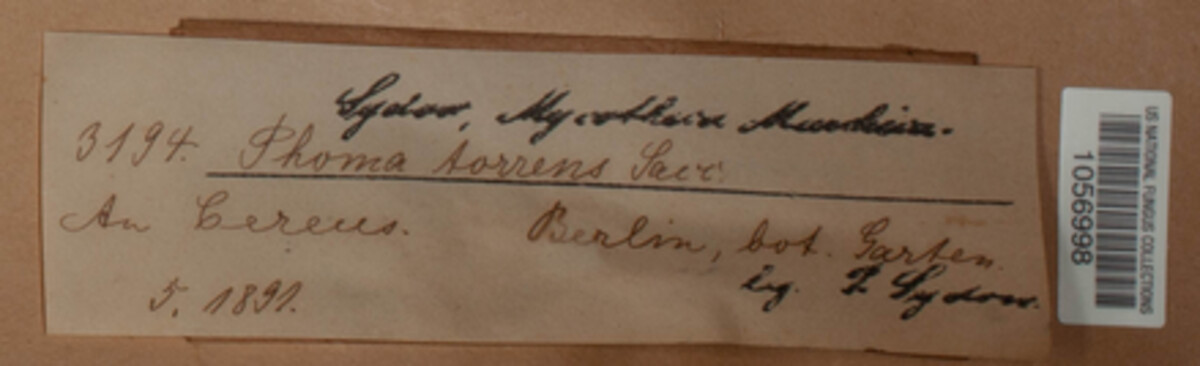 Sydow, Mycotheca Marchica.
3194. Phoma torrens Sacc.
An Cereus. Berlin, bot. Garten.
leg. P. Sydow.
5. 1891.
US NATIONAL FUNGUS COLLECTIONS
1056998